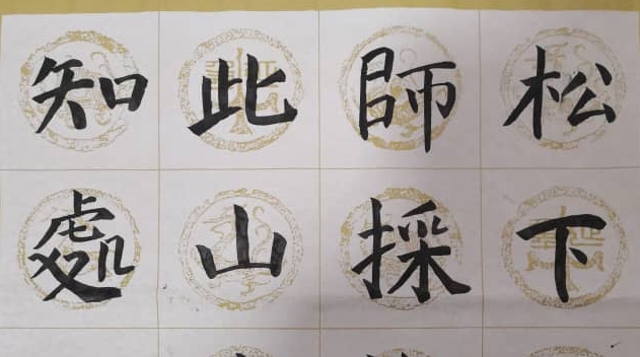 松下
師採
此山
知處